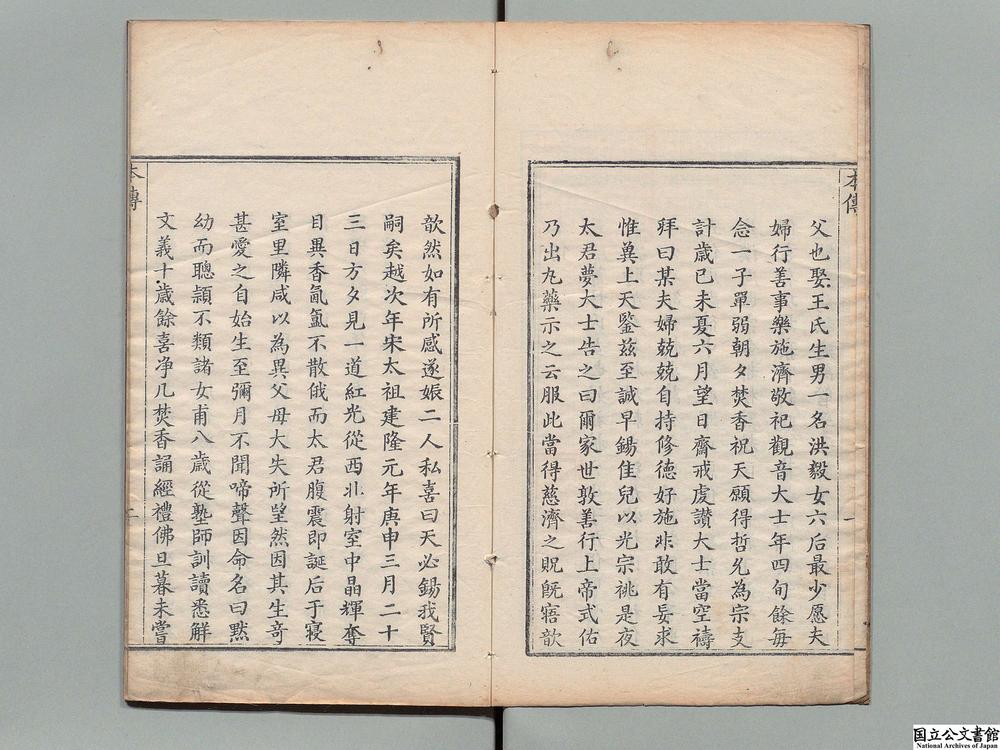 本傳
一
父也娶王氏生男一名洪毅女六后最少愿夫
婦行善事樂施濟敬祀觀音大士年四旬餘每
念一子單弱朝夕焚香祝天願得哲兒為宗支
計歲已未夏六月望日齋戒虔讚大士當空禱
拜曰某夫婦兢兢自持修德好施非敢有妄求
惟冀上天鑒茲至誠早錫佳兒以光宗祧是夜
太君夢大士告之曰爾家世敦善行上帝式佑
乃出丸藥示之云服此當得慈濟之貺既寤歆
歆然如有所感遂娠二人私喜曰天必錫我賢
嗣矣越次年宋太祖建隆元年庚申三月二十
三日方夕見一道紅光從西北射室中晶輝奪
目異香氤氳不散俄而太君腹震即誕后于寢
室里隣咸以為異父母大失所望然因其生奇
甚愛之自始生至彌月不聞啼聲因命名曰默
幼而聰頴不類諸女甫八歲從塾師訓讀悉解
文義十歲餘喜净几焚香誦經禮佛旦暮未嘗
本傳
二
国立公文書館
National Archives of Japan